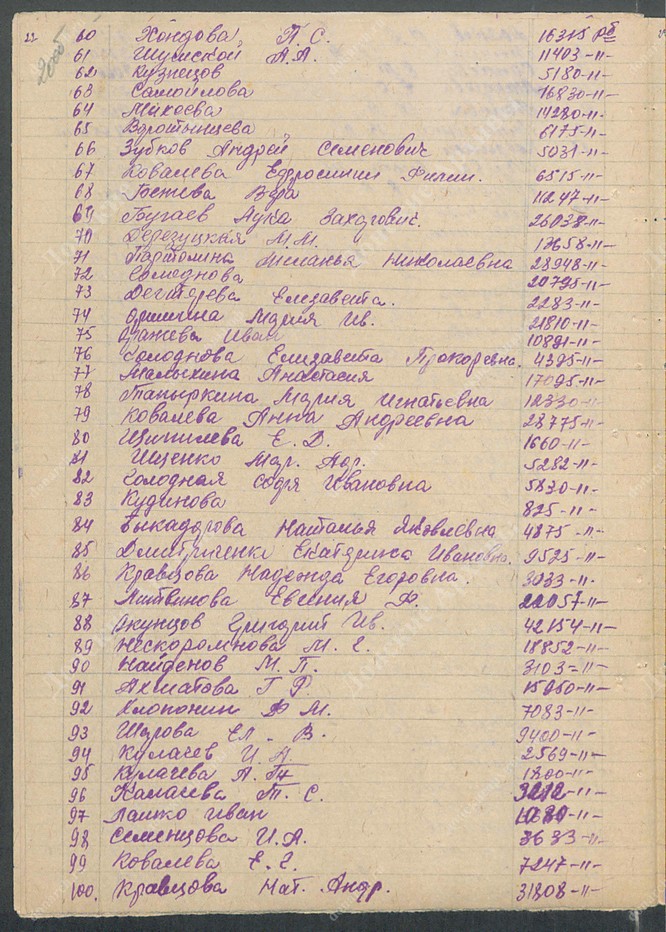 22
2005
60 Хондова П. С. 16315 рб
61 Шумской А. А. 11403-"-
62 Кузнецов 5180-"-
63 Самойлова 16830-"-
64 Михеева 14280-"-
65 Воротынцева 6175-"-
66 Зубков Андрей Семенович 5031-"-
67 Ковалева Ефросиния Филип. 6515-"-
68 Вера 11247-"-
69 Бугаев Лука Захарович. 26038-"-
70 М. М. 13658-"-
71 Николаевна 28948-"-
72 20795-"-
73 Дегтерева Елизавета. 2283-"-
74 Мария Ив. 21810-"-
75 Иван 10891-"-
76 Солоднова Елизавета Прокоревна. 4395-"-
77 Малыхина Анастасия 17095-"-
78 Папыркина Мария Игнатьевна 12330-"-
79 Ковалева Анна Андреевна 28775-"-
80 Шипилева Е. Д. 1660-"-
81 Ищенко Мар. Анр. 5282-"-
82 Солодная Софя Ивановна 5830-"-
83 Кудинова 825-"-
84 Быкадорова Наталья Яковлевна 4875-"-
85 Дмитриченко Екатерина Ивановна. 9525-"-
86 Кравцова Надежда Егоровна. 3033-"-
87 Литвинова Евгения Ф. 22057-"-
88 Якунцов Григорий Ив. 42154-"-
89 Нескоромнова М. Е. 18852-"-
90 Найденов М. П. 3103-"-
91 Ахматова Г Р. 15060-"-
92 Клопонин Ф М. 7083-"-
93 Шурова Ел. В. 9400-"-
94 Кулачев И. Н. 2569-"-
95 Кулачева А. 1800-"-
96 Калачева Т. С. 3212-"-
97 Лашко Иван 1080-"-
98 Семенцова И. А. 3633-"-
99 Ковалева Е. Е. 7247-"-
100. Кравцова Нат. Андр. 31808-"-